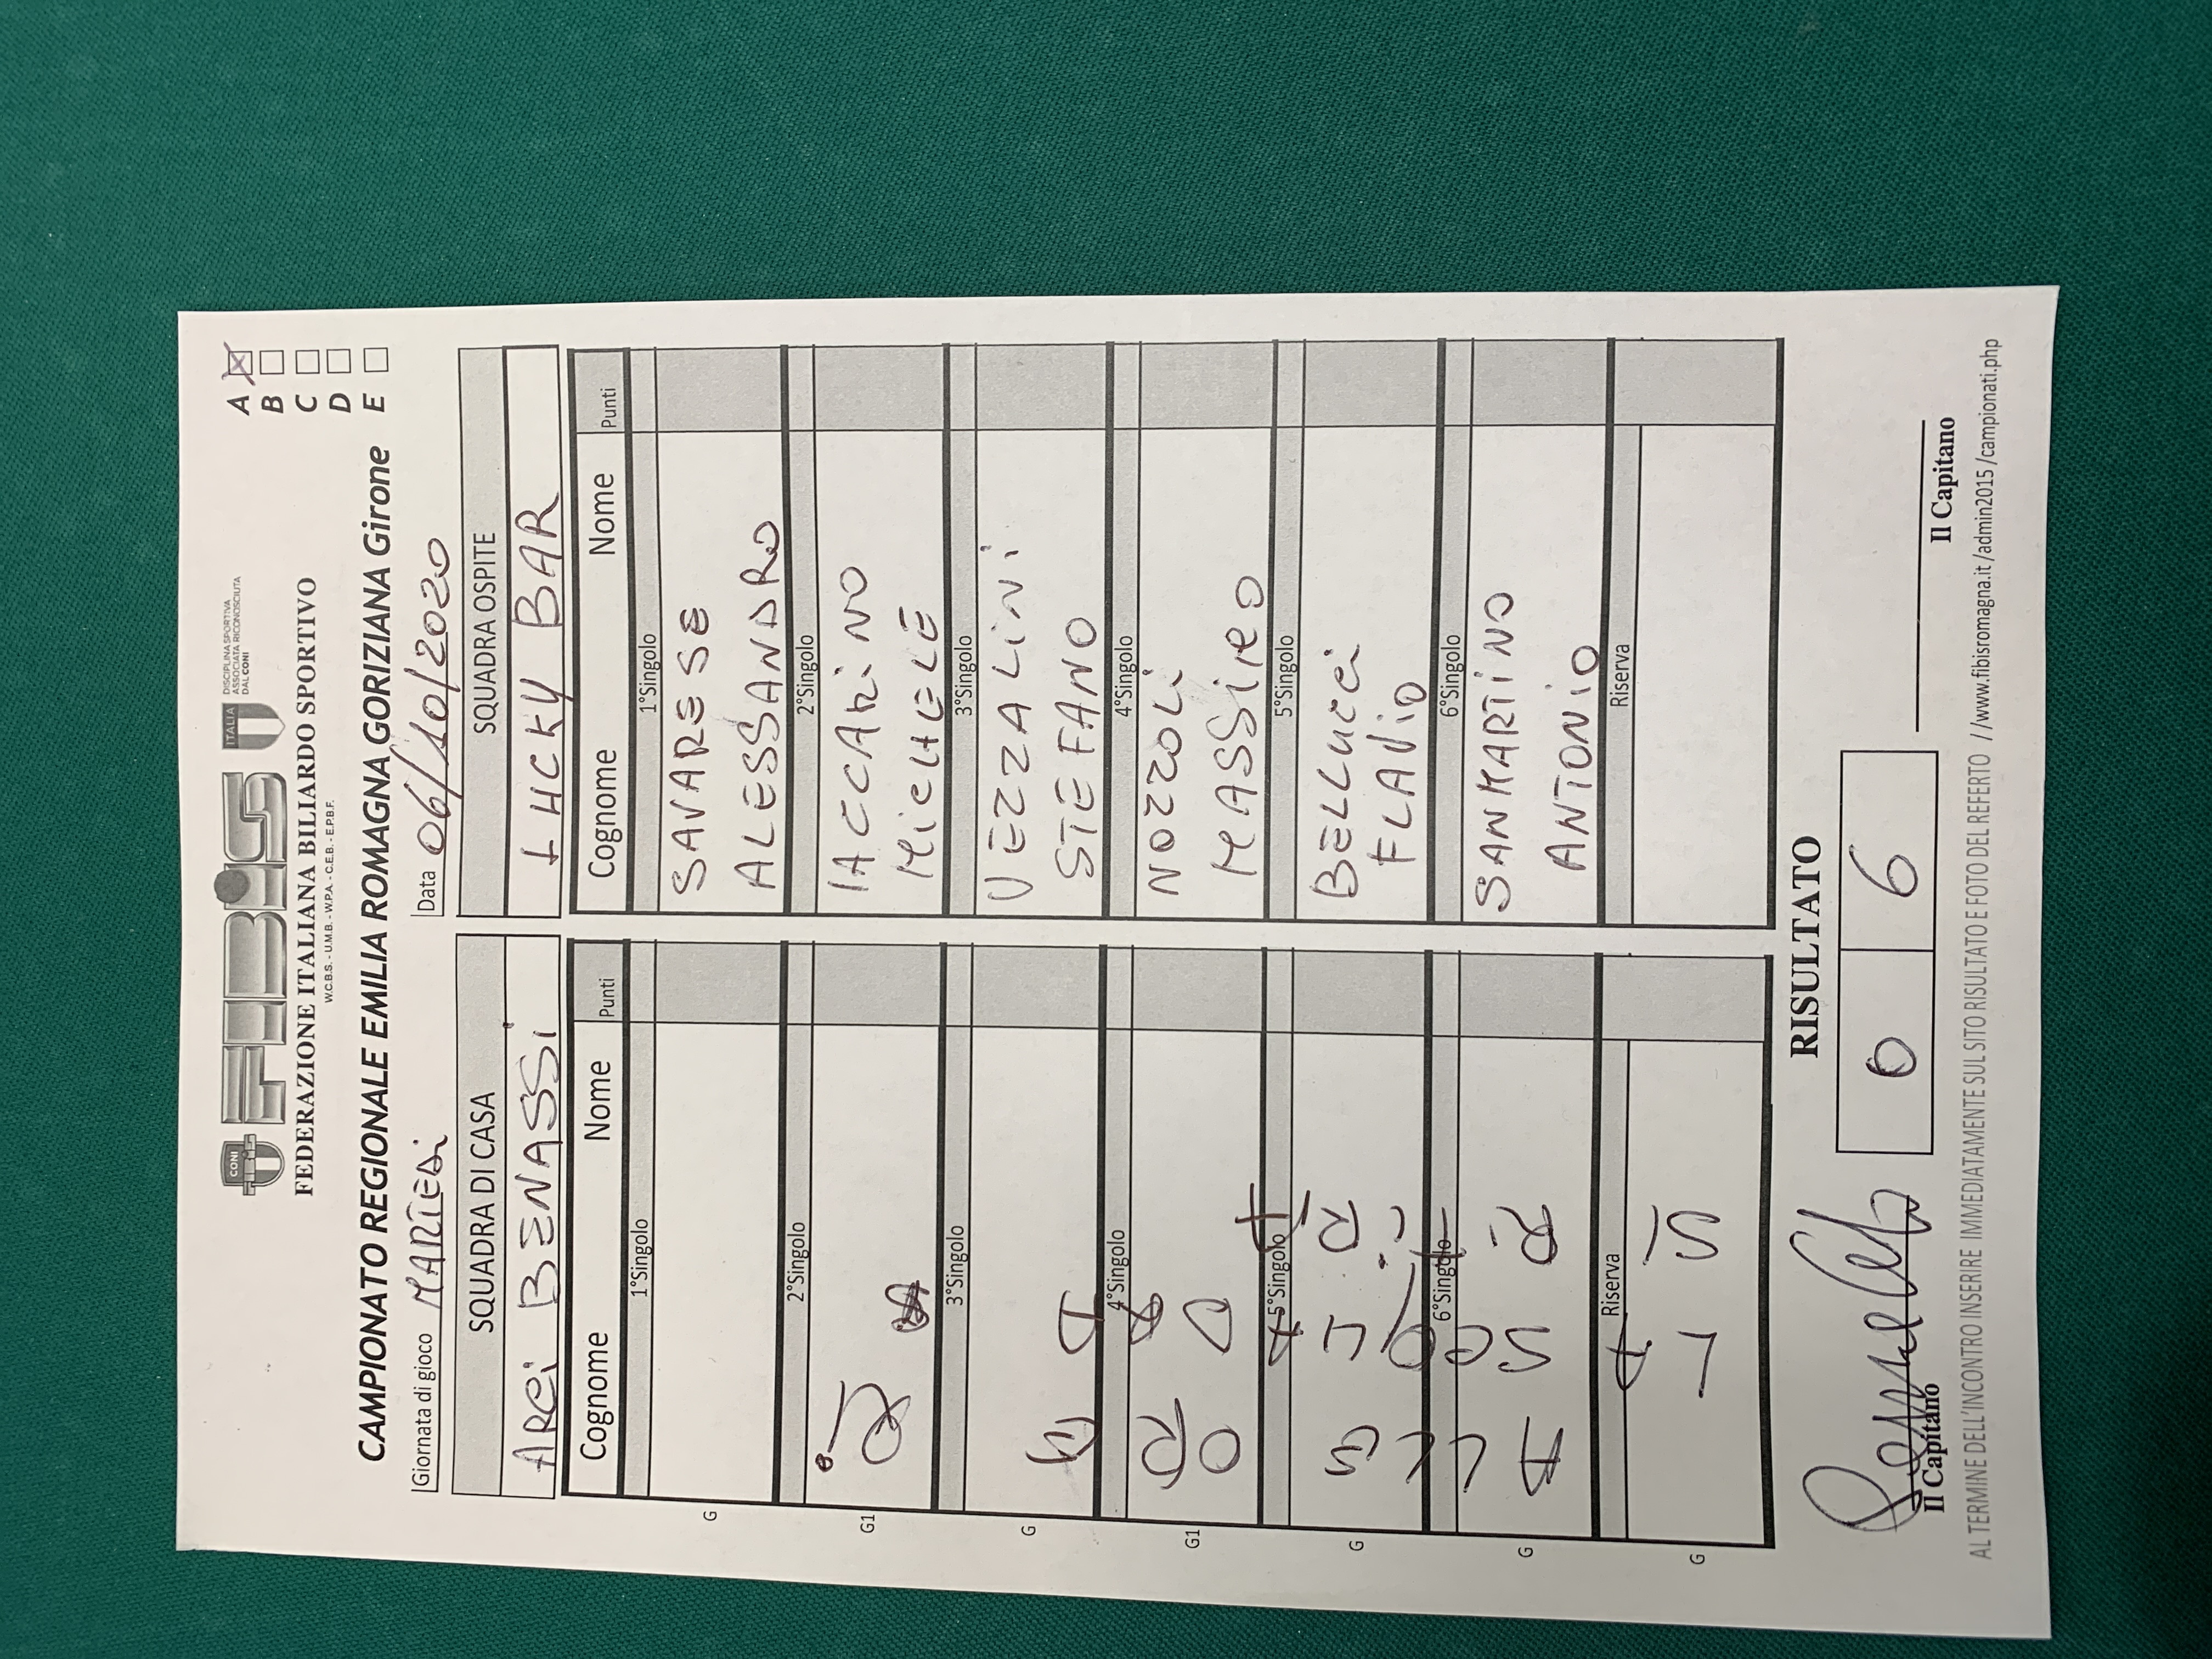 CONI
FIBiS
ITALIA
DISCIPLINA SPORTIVA
ASSOCIATA RICONOSCIUTA
DAL CONI
FEDERAZIONE ITALIANA BILIARDO SPORTIVO
W.C.B.S. - U.M.B. - W.P.A. - C.E.B. - E.P.B.F.
CAMPIONATO REGIONALE EMILIA ROMAGNA GORIZIANA Girone
A
B
C
D
E
Giornata di gioco MARTEDi
Data 06/10/2020
SQUADRA DI CASA
ARCi BENASSi
Cognome Nome Punti
1°Singolo
G
2°Singolo
G1
3°Singolo
G
4°Singolo
G1
5°Singolo
G
6°Singolo
G
Riserva
G
SQUADRA OSPITE
LUCKY BAR
Cognome Nome Punti
1°Singolo
SAVARESE
ALESSANDRO
2°Singolo
IACCARiNO
MiCHELE
3°Singolo
VEZZALiNi
STEFANO
4°Singolo
NOZZOLi
MASSiMO
5°Singolo
BELLUCCi
FLAViO
6°Singolo
SANMARTiNO
ANTONiO
Riserva
RISULTATO
0 6
Il Capitano
Il Capitano
AL TERMINE DELL'INCONTRO INSERIRE IMMEDIATAMENTE SUL SITO RISULTATO E FOTO DEL REFERTO //www.fibisromagna.it/admin2015/campionati.php